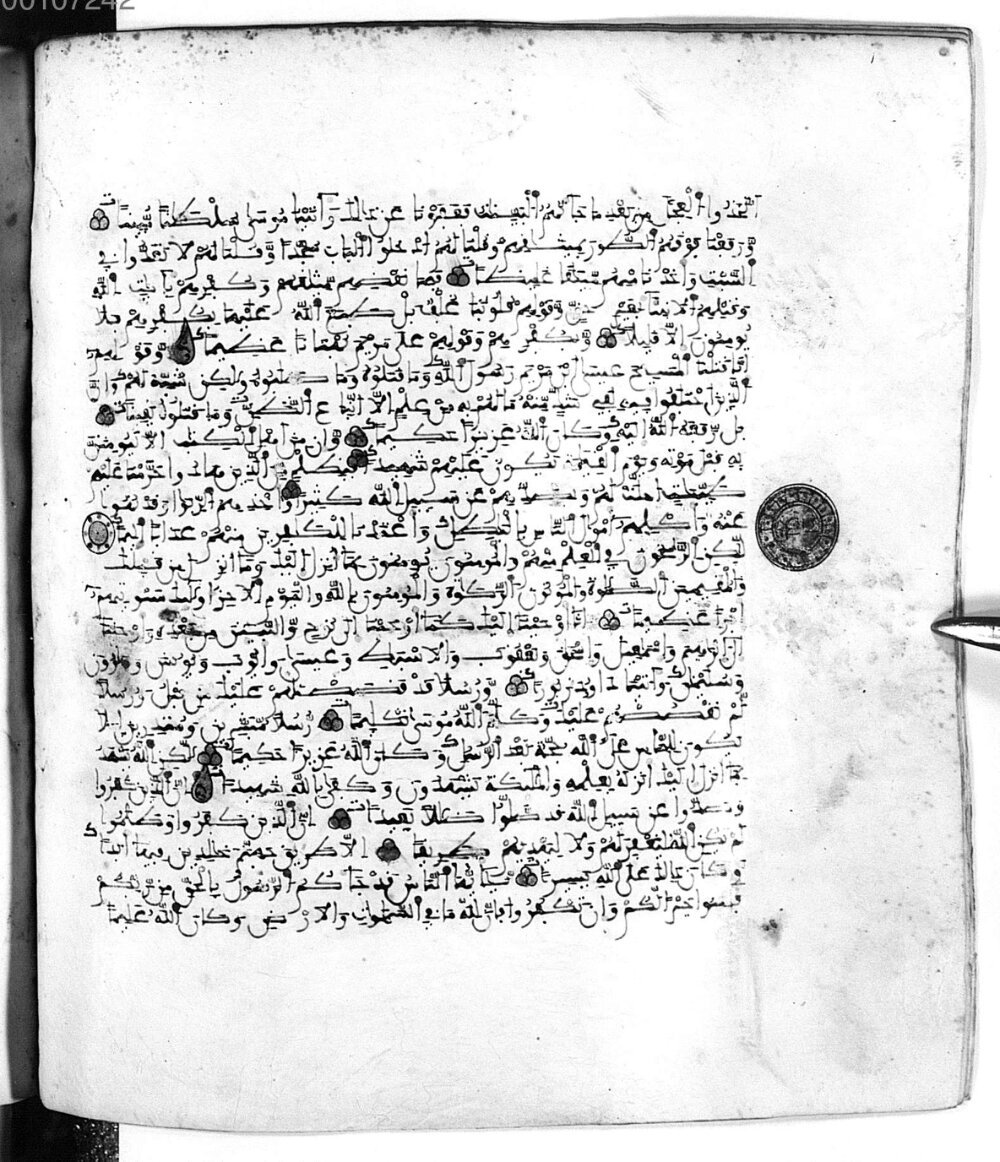 00107242
اتخذوا العجل من بعد ما جاءتهم البينت فعفونا عن ذلك وءاتينا موسى سلطنا مبينا
ورفعنا فوقهم الطور بميثقهم وقلنا لهم ادخلوا الباب سجدا وقلنا لهم لا تعدوا في
السبت واخذنا منهم ميثقا غليظا فبما نقضهم ميثقهم وكفرهم بآيت الله
وقتلهم الانبياء بغير حق وقولهم قلوبنا غلف بل طبع الله عليها بكفرهم فلا
يومنون الا قليلا وبكفرهم وقولهم على مريم بهتنا عظيما وقولهم
انا قتلنا المسيح عيسى ابن مريم رسول الله وما قتلوه وما صلبوه ولكن شبه لهم وان
الذين اختلفوا فيه لفي شك منه ما لهم به من علم الا اتباع الظن وما قتلوه يقينا
بل رفعه الله اليه وكان الله عزيزا حكيما وان من اهل الكتب الا ليومنن
به قبل موته ويوم القيمة يكون عليهم شهيدا فبظلم من الذين هادوا حرمنا عليهم
طيبت احلت لهم وبصدهم عن سبيل الله كثيرا واخذهم الربوا وقد نهوا
عنه واكلهم امول الناس بالبطل واعتدنا للكفرين منهم عذابا اليما
لكن الرسخون في العلم منهم والمومنون يومنون بما انزل اليك وما انزل من قبلك
والمقيمين الصلوة والموتون الزكوة والمومنون بالله واليوم الاخر اولئك سنوتيهم
اجرا عظيما انا اوحينا اليك كما اوحينا الى نوح والنبيين من بعده واوحينا
الى ابرهيم واسمعيل واسحق ويعقوب والاسباط وعيسى وايوب ويونس وهرون
وسليمن وءاتينا داوود زبورا ورسلا قد قصصنهم عليك من قبل ورسلا
لم نقصصهم عليك وكلم الله موسى تكليما رسلا مبشرين ومنذرين لئلا
يكون للناس على الله حجة بعد الرسل وكان الله عزيزا حكيما لكن الله يشهد
بما انزل اليك انزله بعلمه والملئكة يشهدون وكفى بالله شهيدا ان الذين كفروا
وصدوا عن سبيل الله قد ضلوا ضللا بعيدا ان الذين كفروا وظلموا
لم يكن الله ليغفر لهم ولا ليهديهم طريقا الا طريق جهنم خلدين فيها ابدا
وكان ذلك على الله يسيرا يايها الناس قد جاءكم الرسول بالحق من ربكم
فءامنوا خيرا لكم وان تكفروا فان لله ما في السموت والارض وكان الله عليما